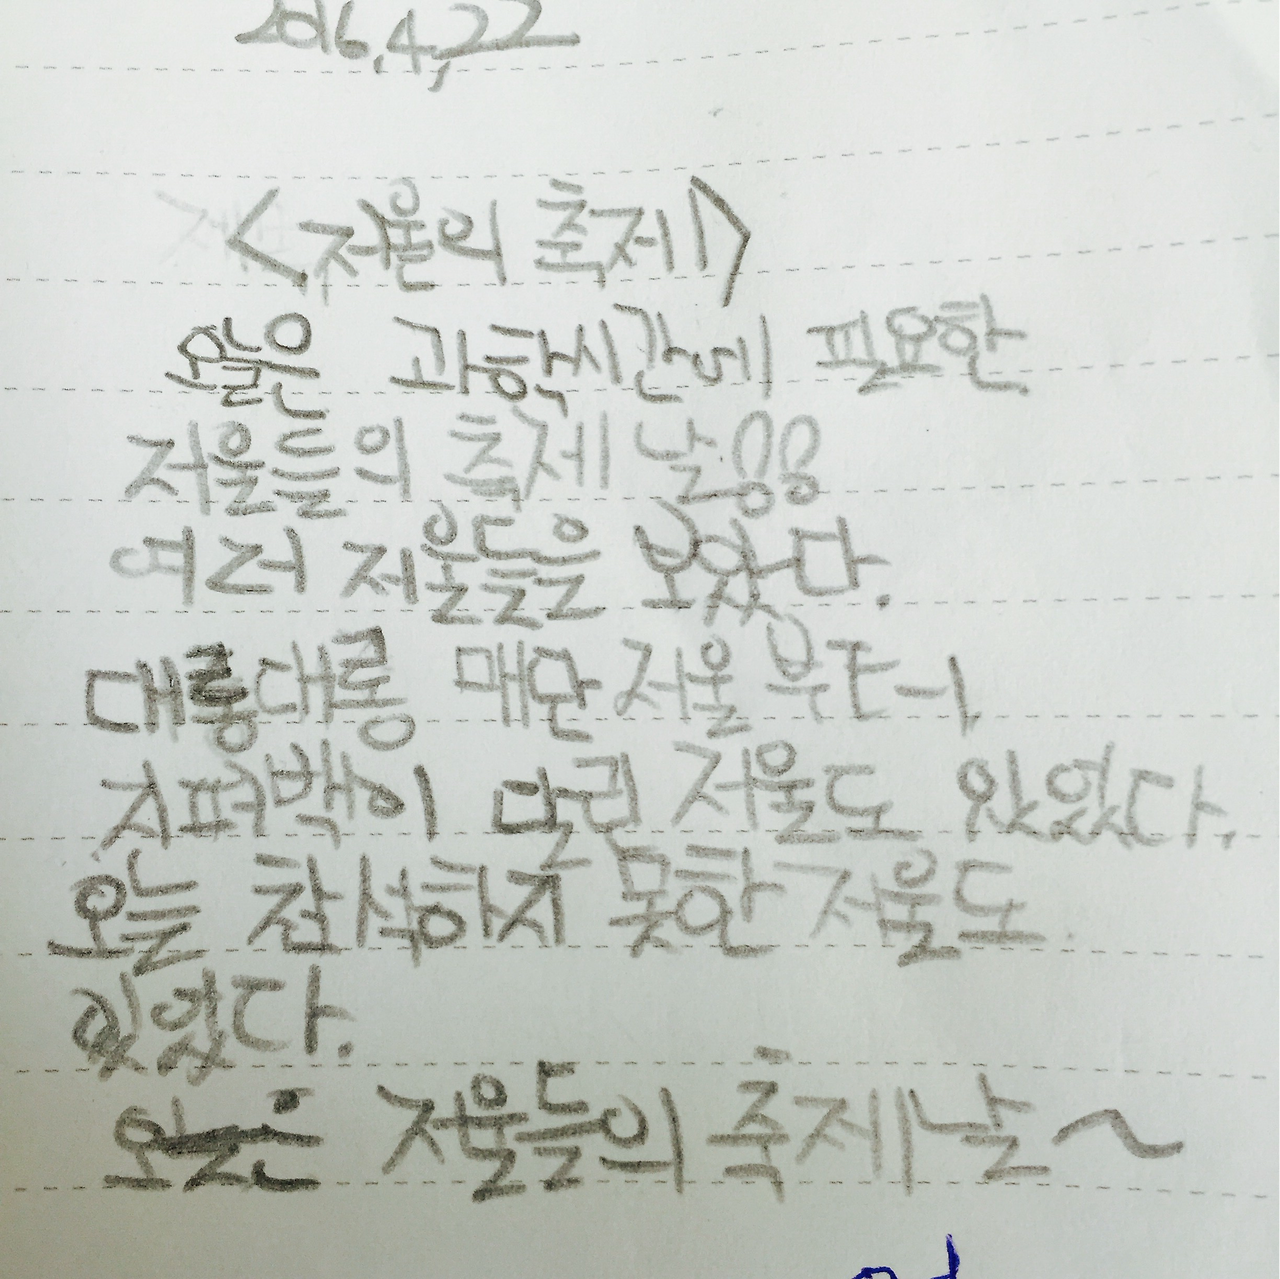 2016.4.22
<저울의 축제>
오늘은 과학시간에 필요한
저울들의 축제 날
여러 저울들을 보았다.
대롱대롱 매단 저울 부터
지퍼백이 달린 저울도 있었다.
오늘 참석하지 못한 저울도
있었다.
오늘은 저울들의 축제날~